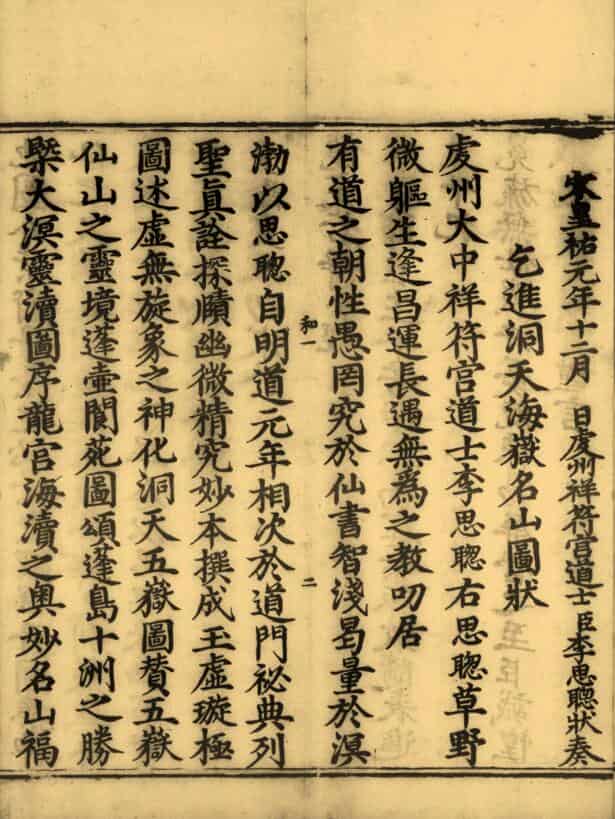 宋皇祐元年十二月 日虔州祥符宫道士臣李思聰狀奏
乞進洞天海嶽名山圖狀
虔州大中祥符宫道士李思聰右思聰草野
微軀生逢昌運長遇無為之教叨居
有道之朝性愚罔究於仙書智淺曷量於溟
和一 二
渤以思聰自明道元年相次於道門祕典列
聖真詮探賾幽微精究妙本撰成玉虛璇極
圖述虛無旋象之神化洞天五嶽圖賛五嶽
仙山之靈境蓬壺閬苑圖頌蓬島十洲之勝
槩大溟靈瀆圖序龍宫海瀆之奥妙名山福